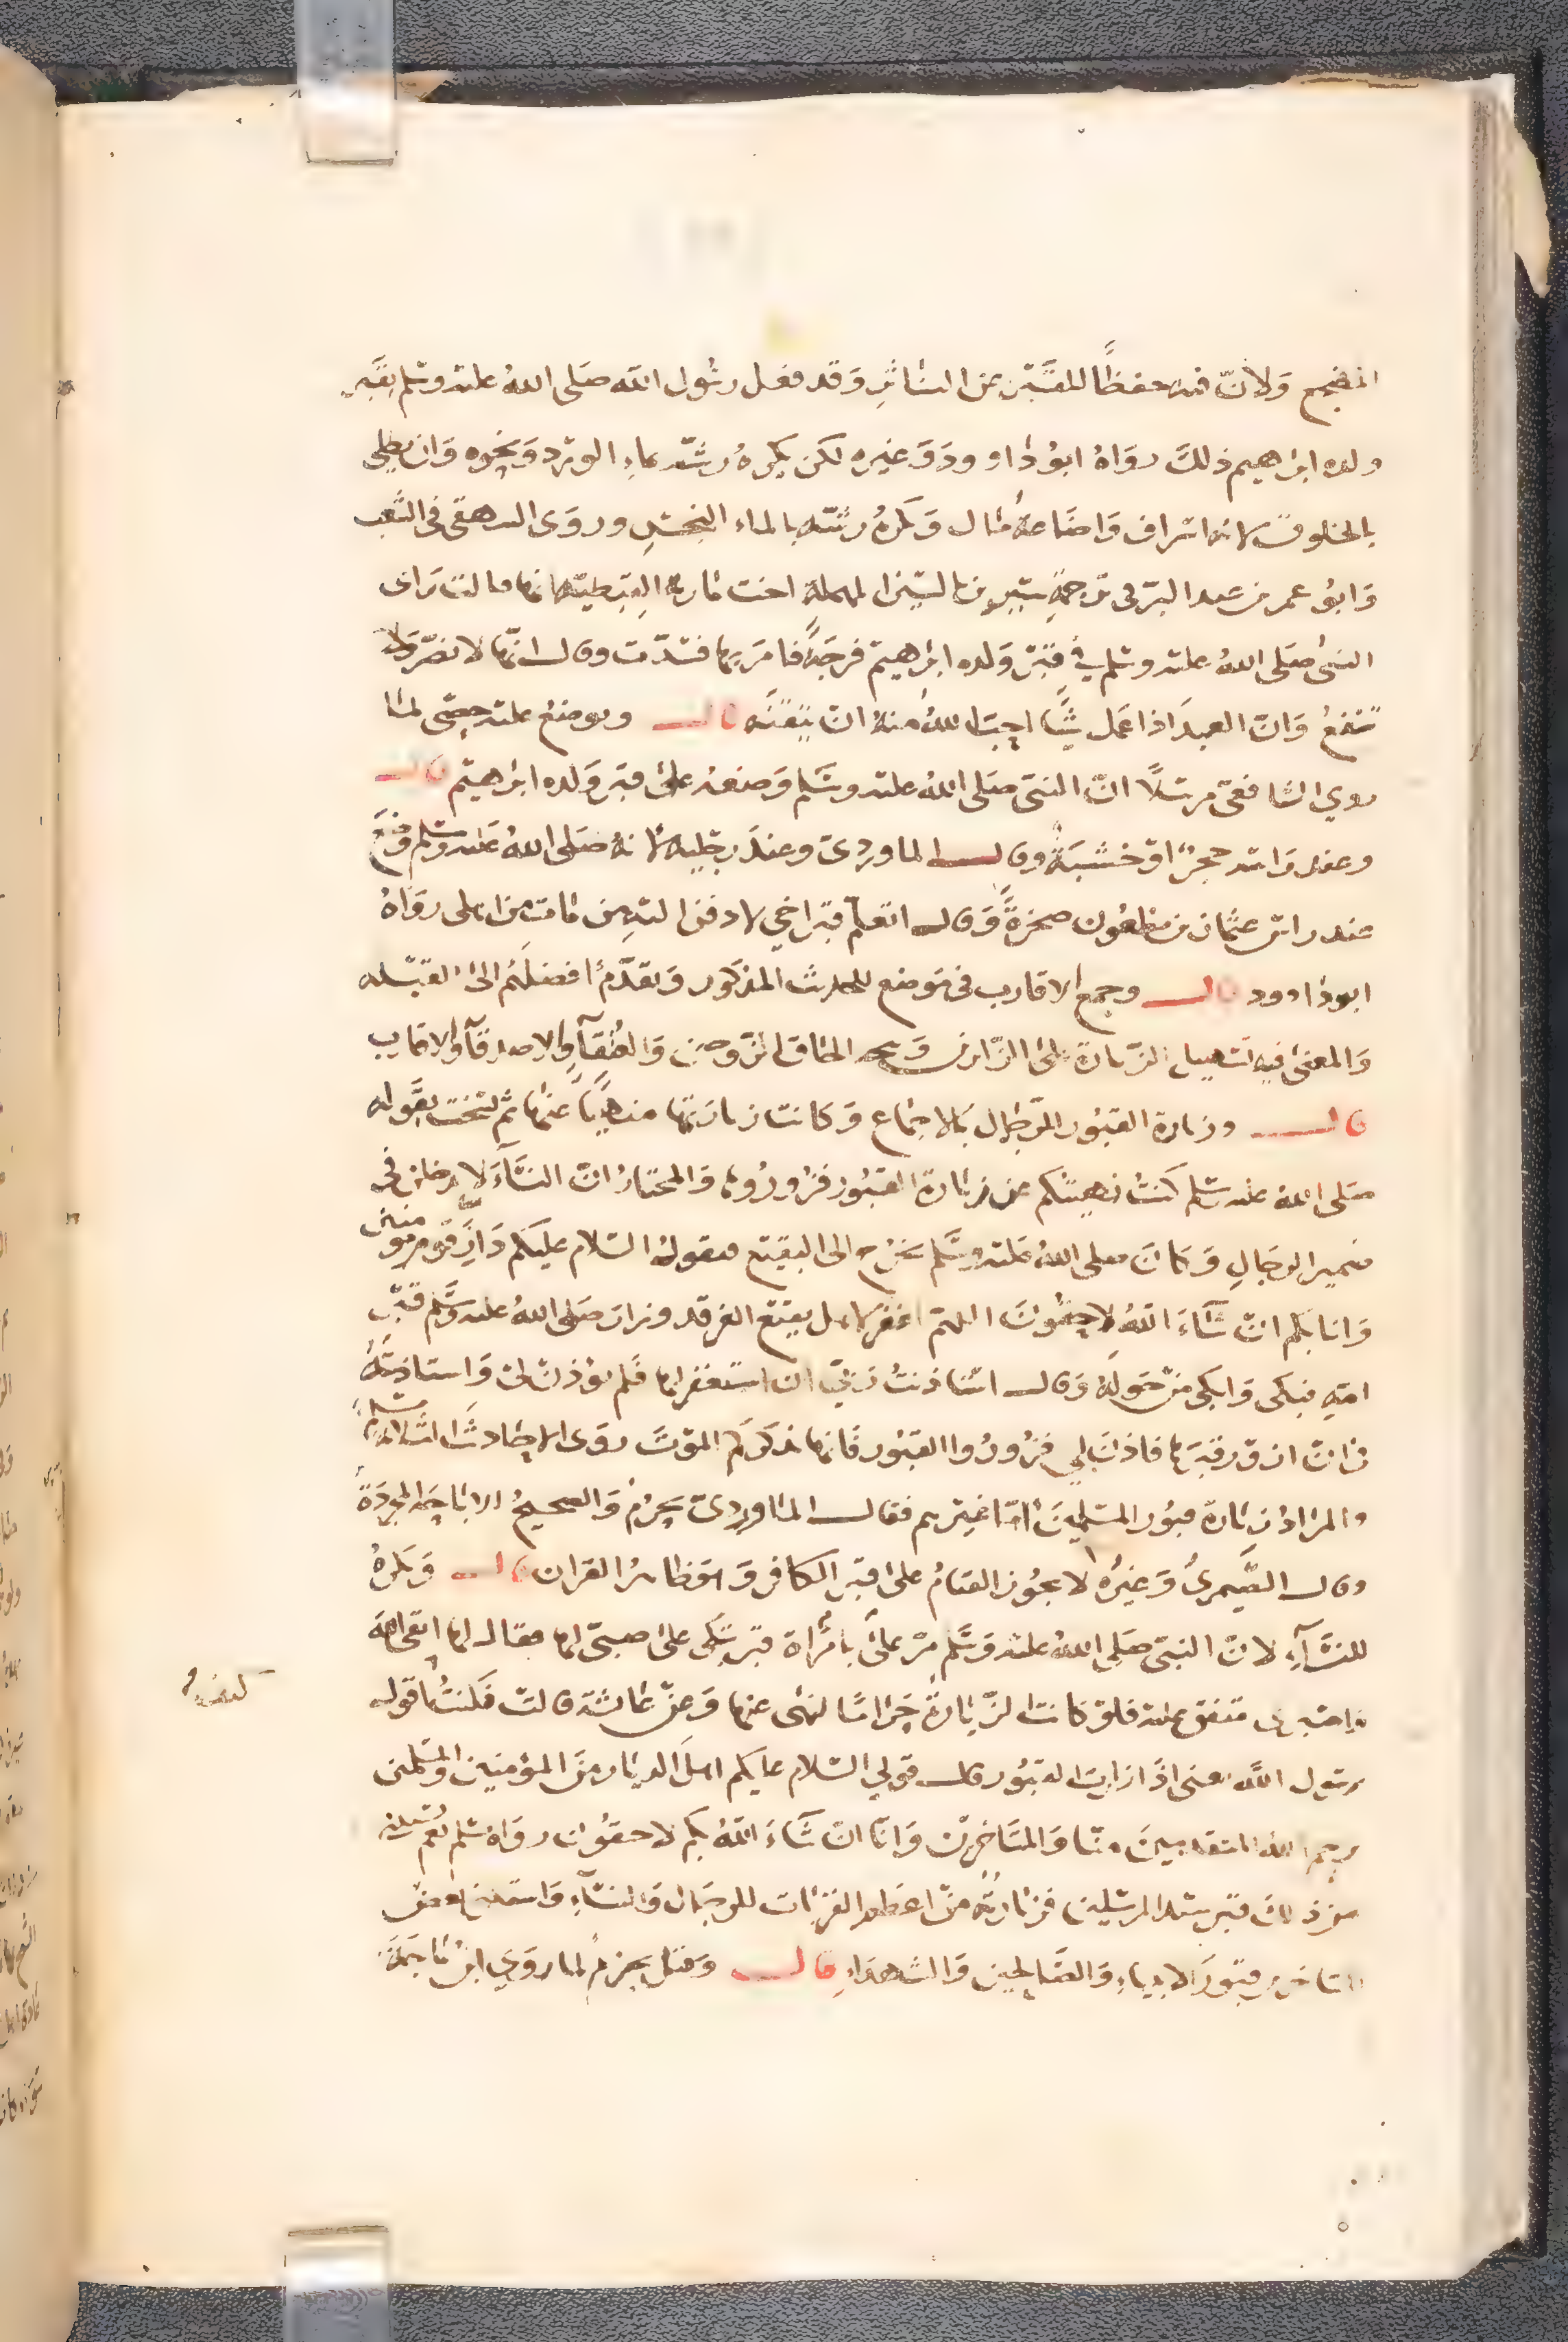 المضجع ولأن فيه حفظًا للقبر عن التناثر وقد فعل رسول الله صلى الله عليه وسلم بقبر
ولده ابراهيم ذلك رواه ابو داود وغيره لكن يكره رشه بماء الورد ونحوه وان يطلى
بالخلوق لانه اسراف واضاعة مال وكره رشه بالماء النجس وروى البيهقي في الشعب
وابو عمر بن عبد البر في ترجمة سيرين بالسين المهملة اخت مارية القبطية انها قالت رأى
النبي صلى الله عليه وسلم في قبر ولده ابراهيم فرجةً فامر بها فسدّت وقال انها لا تضر ولا
تنفع وان العبد اذا عمل شيًا احبّ الله منه ان يتقنه قال ويوضع عليه حصى لما
روي الشافعي مرسلًا ان النبي صلى الله عليه وسلم وضعه على قبر ولده ابراهيم قال
وعند راسه حجر او خشبة وقال الماوردي وعند رجليه لانه صلى الله عليه وسلم وضع
عند راس عثمان بن مظعون صخرةً وقال اتعلم قبر اخي لادفن اليه من مات من اهلي رواه
ابو داوود قال وجمع الاقارب في موضع للحديث المذكور ويقدم افضلهم الى القبلة
والمعنى فيه تسهيل الزيارة على الزائر ويتجه الحاق الزوجين والعتقاء والاصدقاء والاقارب
قال وزيارة القبور للرجال بالاجماع وكانت زيارتها منهيًا عنها ثم نسخت بقوله
صلى الله عليه وسلم كنت نهيتكم عن زيارة القبور فزوروها والمختار ان النساء لا يدخلن في
ضمير الرجال وكان صلى الله عليه وسلم يخرج الى البقيع فيقول السلام عليكم دار قوم مومنين
وانا بكم ان شاء الله لاحقون اللهم اغفر لاهل بقيع الغرقد وزار صلى الله عليه وسلم قبر
امه فبكى وابكى من حوله وقال استاذنت ربي ان استغفر لها فلم يؤذن لي واستاذنته
في ان ازور قبرها فاذن لي فزوروا القبور فانها تذكركم الموت روى الاحاديث الثلاثة مسلم
والمراد زيارة قبور المسلمين اما غيرهم فقال الماوردي يحرم والصحيح الاباحة المجردة
وقال الصيمري وغيره لا يجوز القيام على قبر الكافر وهو ظاهر القران قال ويكره
للنساء لان النبي صلى الله عليه وسلم مر على بامراة قبر تبكى على صبي لها فقال لها اتقي الله
واصبري متفق عليه فلو كانت الزيارة حرامًا لنهى عنها وعن عائشة قالت قلت اقول
كيف
يرسول الله يعنى اذا زارت القبور قال قولي السلام عليكم اهل الديار من المؤمنين والمسلمين
يرحم الله المتقدمين منا والمتاخرين وانا ان شاء الله بكم لاحقون رواه مسلم نعم يستثنى
من ذلك قبر سيد المرسلين فزيارته من اعظم القربات للرجال والنساء واستثنى بعض
المتاخرين قبور الانبياء والصالحين والشهداء قال وقيل يحرم لما روي ابن ماجة